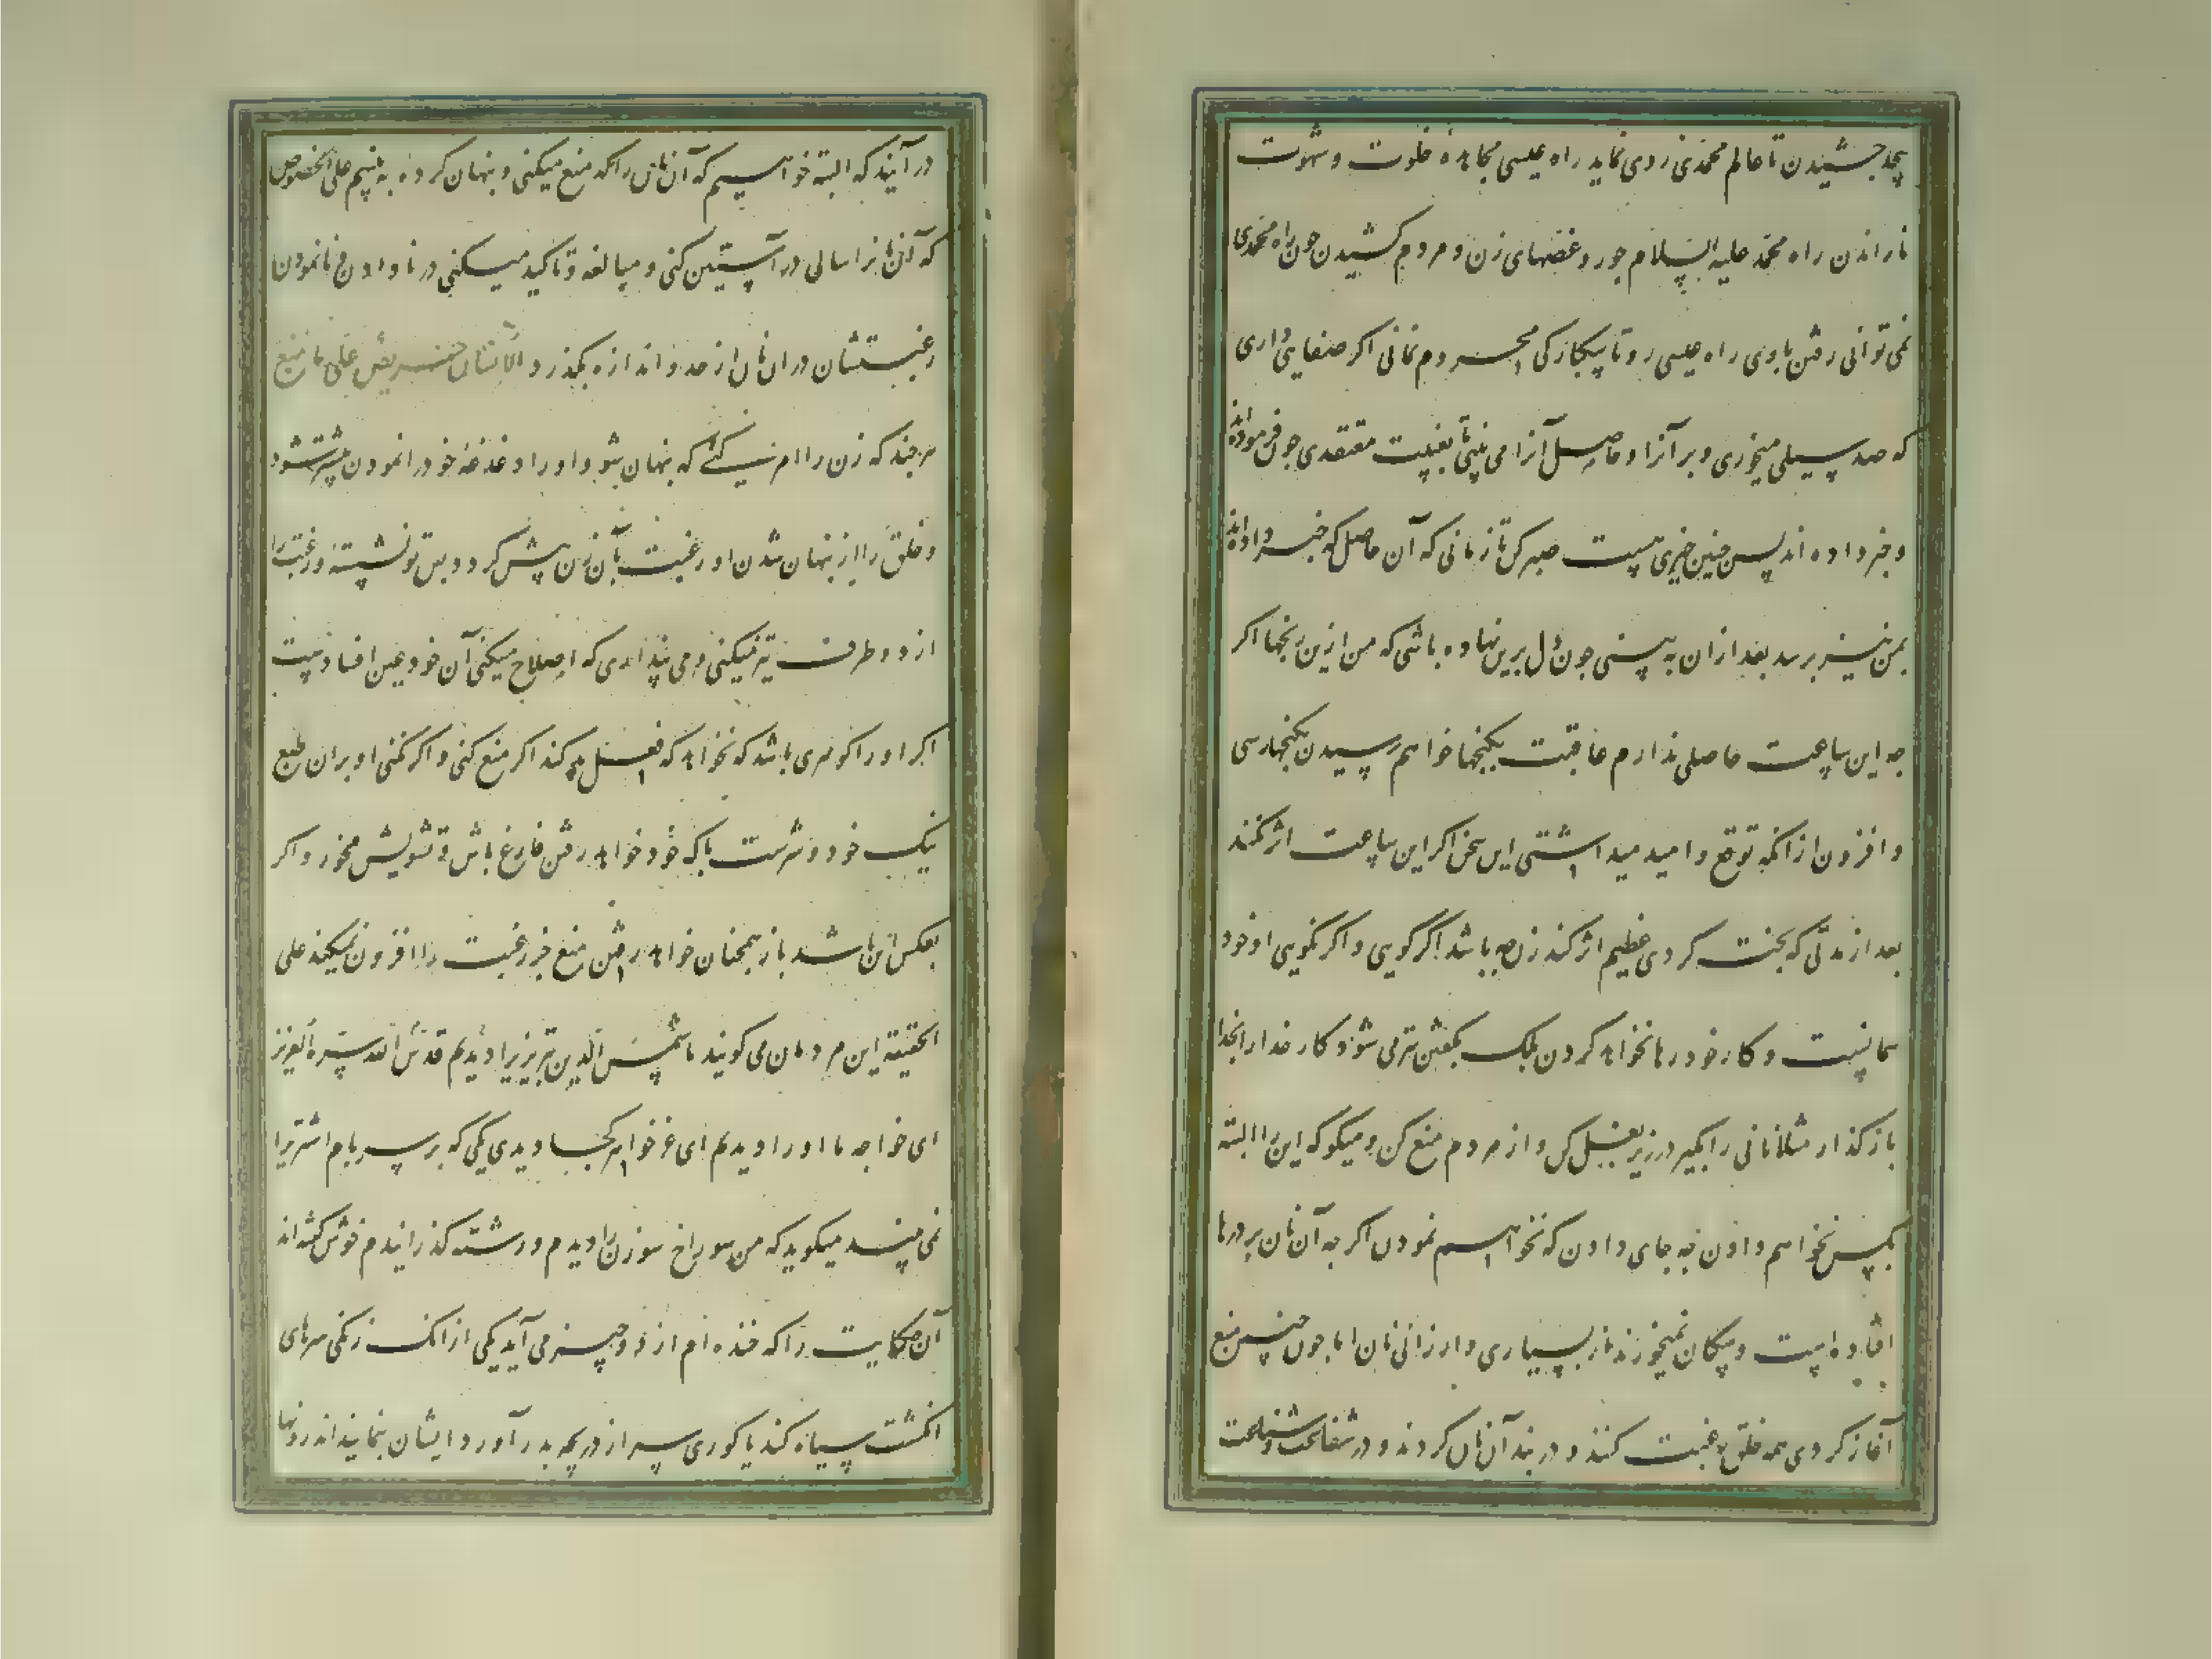 بیحد چشیدن تا عالم محمدی روی نماید راه عیسی مجاهدهٔ خلوت و شهوت
ناراندن راه محمد علیه السلام جور و غصهای زن و مردم کشیدن چون راه محمدی
نمی توانی رفتن باری راه عیسی رو تا بیکبارکی محروم نمانی اکر صفایی داری
که صد سیلی میخوری و بر آنرا و حاصل آنرا می بینی یا بغیبت معتقدی چون فرموده‌اند
و خبر داده اند پس چنین چیزی هست صبر کن تا زمانی که آن حاصل که خبر داده‌اند
بمن نیز برسد بعد ازان به بینی چون دل برین نهاده باشی که من ازین رنجها اکر
چه این ساعت حاصلی ندارم عاقبت بکنجها خواهم رسیدن بکنجها رسی
و افزون ازانکه توقع و امید میداشتی این سخن اکر این ساعت اثر نکند
بعد از مدتی که پخته کردی عظیم اثر کند زن چه باشد اکر کویی و اکر نکویی او خود
همانست و کار خود رها نخواهد کردن بلک بکفتن بتر می شود و کار خدا را بخدا
باز کذار مثلا نانی را بکیر در زیر بغل کن و از مردم منع کن و میکو که این را البته
بکس نخواهم دادن چه جای دادن که نخواهم نمودن اکر چه آن نان بر درها
افتاده است و سکان نمیخورند از بسیاری و ارزانی نان اما چون چنین منع
آغاز کردی همه خلق رغبت کنند و در بند آن نان کردند و در شفاعت و شناعت
در آیند که البته خواهیم که آن نان را که منع میکنی و پنهان کرده به بینیم علی الخصوص
که آن نانرا سالی در آستین کنی و مبالغه و تاکید میکنی در نا دادن و نا نمودن
رغبتشان دران نان از حد و اندازه بکذرد الانسان حریص علی ما منع
هر چند که زن را امر کنی که پنهان شو او را دغدغهٔ خود را نمودن بیشتر شود
و خلق را از پنهان شدن او رغبت بآن زن بیش کردد پس تو نشستهٔ و رغبت را
از دو طرف تیز میکنی و می پنداری که اصلاح میکنی آن خود عین افسادست
اکر او را کوهری باشد که نخواهد که فعل بد کند اکر منع کنی و اکر نکنی او بران طبع
نیک خود و سرشت پاک خود خواهد رفتن فارغ باش و تشویش مخور و اکر
بعکس این باشد باز همچنان خواهد رفتن منع جز رغبت را افزون نمیکند علی
الحقیقة این مردمان می کویند ما شمس الدین تبریزیرا دیدیم قدس الله سره العزیز
ای خواجه ما او را دیدیم ای غر خواهر کجا دیدی یکی که بر سر بام اشتریرا
نمی بیند میکوید که من سوراخ سوزن را دیدم و رشته کذرانیدم خوش کفته‌اند
آن حکایت را که خنده ام از دو چیز می آید یکی ازانک زنکی سرهای
انکشت سیاه کند یا کوری سر از دریچه بدر آورد ایشان بنمایند اندرونها